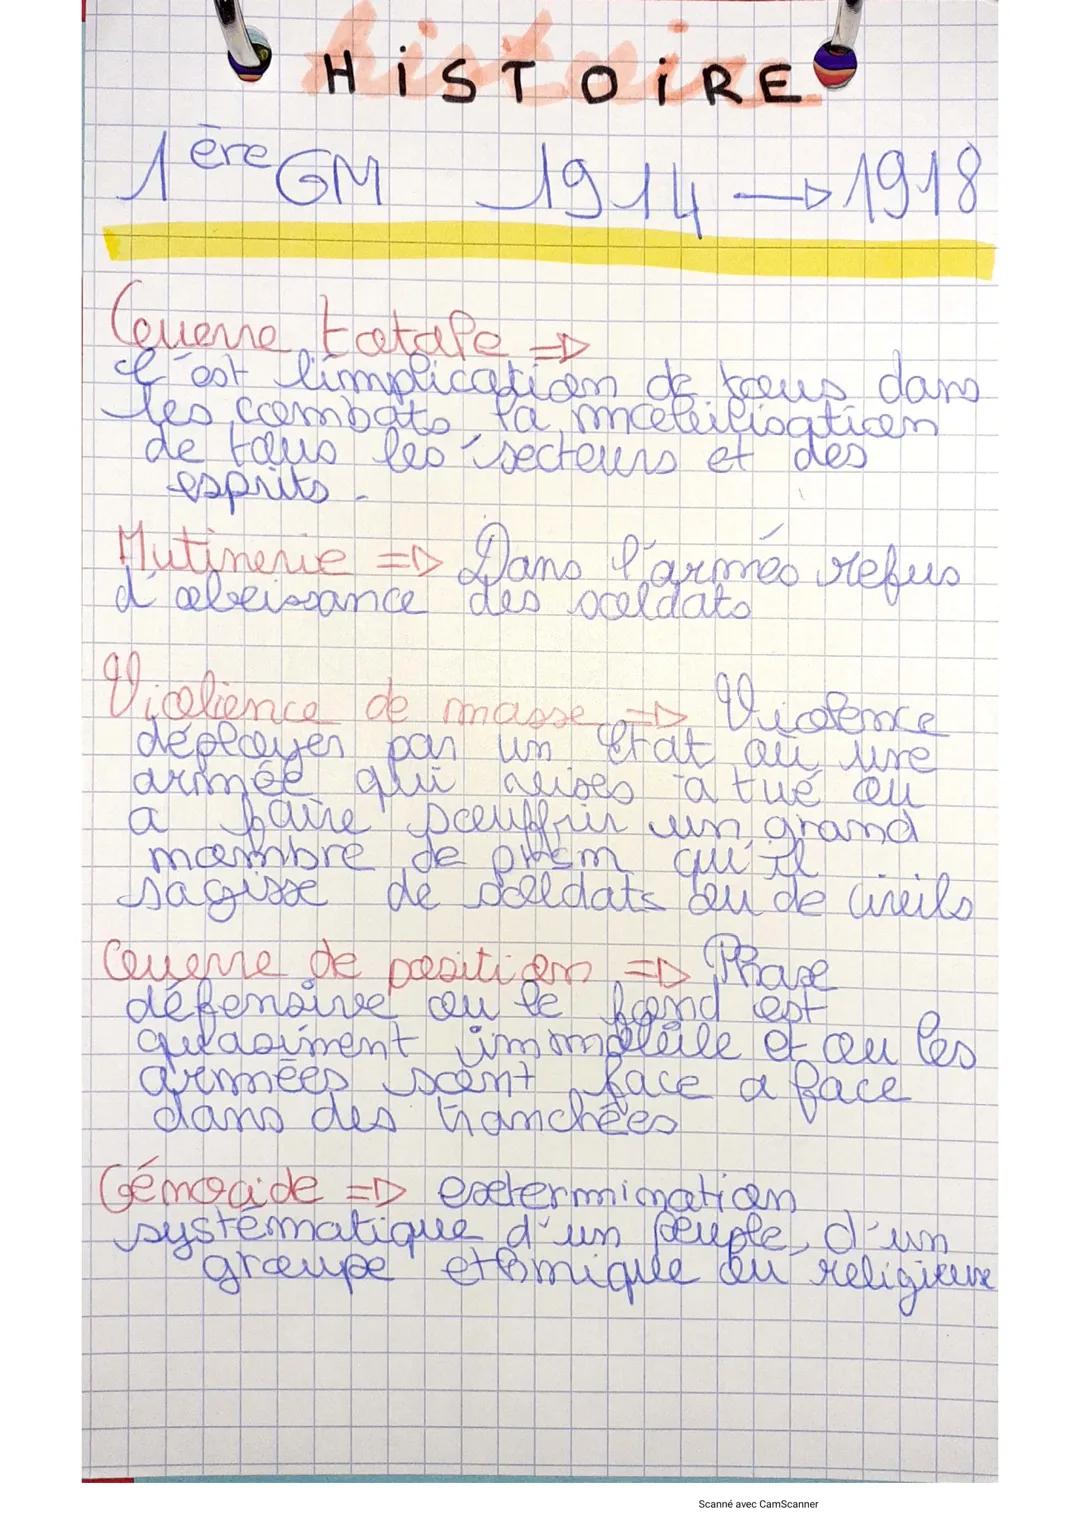 histoire
HiSTOiRE
1ère GM 1914 → 1918
Guerre totale =>
C'est l'implication de tous dans
les combats la mobilisation
de tous les secteurs et des
esprits.
Mutinerie => Dans l'armés refus
d'obeissance des soldats
Violience de masse => Violence
déployer par un état ou une
armée qui vises a tué ou
a faire souffrir un grand
nombre de qu'il
sagisse de soldats ou de civils
Guerre de position => Phase
défensive ou le fond est
qulasiment immobile et ou les
armées sont face a face
dans des tranchées
Génocide => extermination
systématique d'un peuple, d'un
groupe ethnique ou religieuse
Scanné avec CamScanner